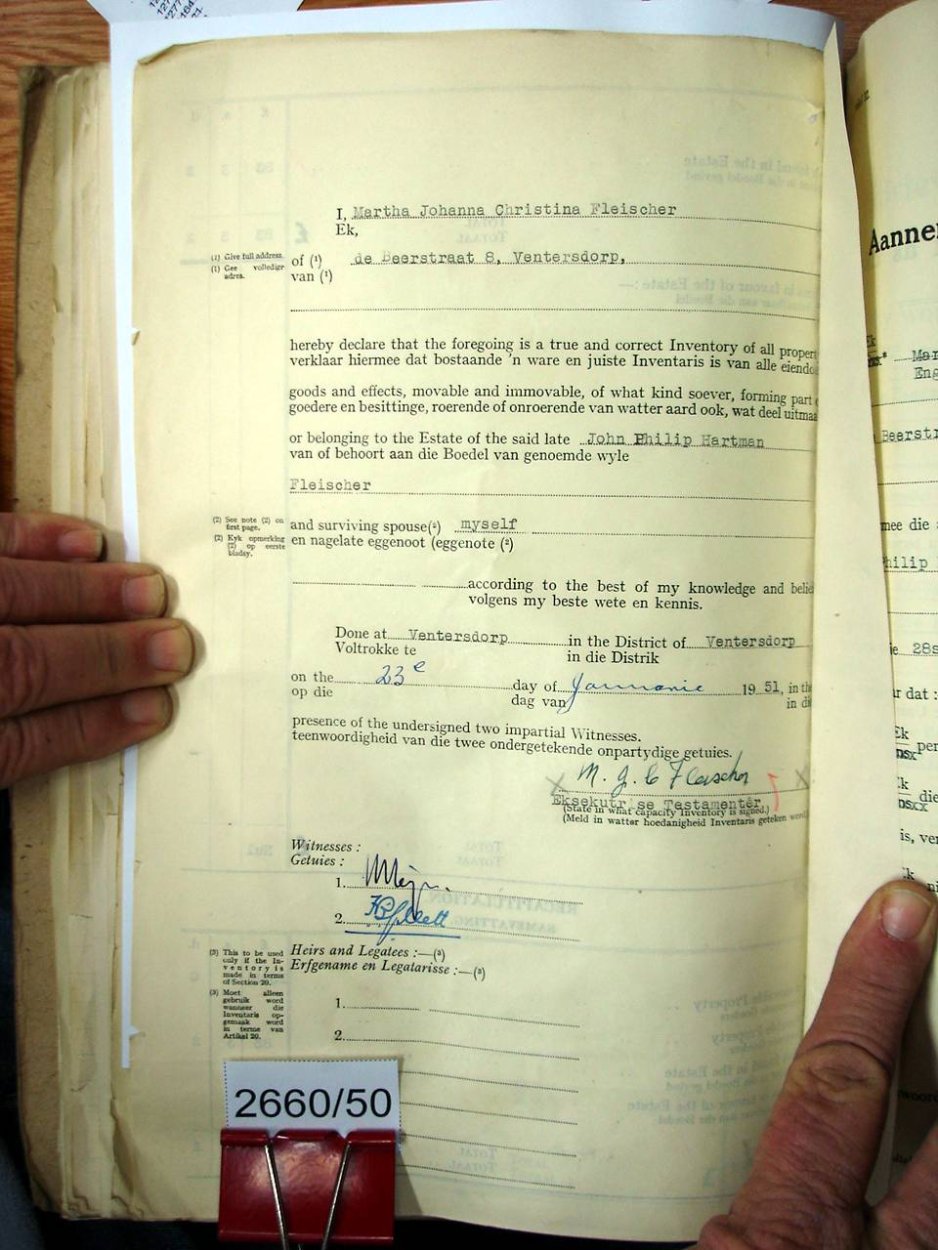 I, Martha Johanna Christina Fleischer
Ek,
(1) Give full address.
(1) Gee volledige adres.
of (1) de Beerstraat 8, Ventersdorp,
van (1)
hereby declare that the foregoing is a true and correct Inventory of all propert
verklaar hiermee dat bostaande 'n ware en juiste Inventaris is van alle eiendo
goods and effects, movable and immovable, of what kind soever, forming part
goedere en besittinge, roerende of onroerende van watter aard ook, wat deel uitmaa
or belonging to the Estate of the said late John Philip Hartman
van of behoort aan die Boedel van genoemde wyle
Fleischer
(2) See note (2) on
first page.
(2) Kyk opmerking
(2) op eerste
bladsy.
and surviving spouse(2) myself
en nagelate eggenoot (eggenote (2)
according to the best of my knowledge and belie
volgens my beste wete en kennis.
Done at Ventersdorp in the District of Ventersdorp
Voltrokke te in die Distrik
on the 23e day of Januarie 19 51, in the
op die dag van in di
presence of the undersigned two impartial Witnesses.
teenwoordigheid van die twee ondergetekende onpartydige getuies.
M. J. C Fleischer
Eksekutrise Testamentêr
(State in what capacity Inventory is signed.)
(Meld in watter hoedanigheid Inventaris geteken word
Witnesses :
Getuies :
1.
2.
(3) This to be used
only if the In-
ventory is
made in terms
of Section 20.
(3) Moet alleen
gebruik word
wanneer die
Inventaris op-
gemaak word
in terme van
Artikel 20.
Heirs and Legatees :—(3)
Erfgename en Legatarisse :—(3)
1.
2.
2660/50
Aannem
Ek
Mar
Eng
Beerstr
mee die
hilip
28s
r dat :
Ek
per
die
is, ver